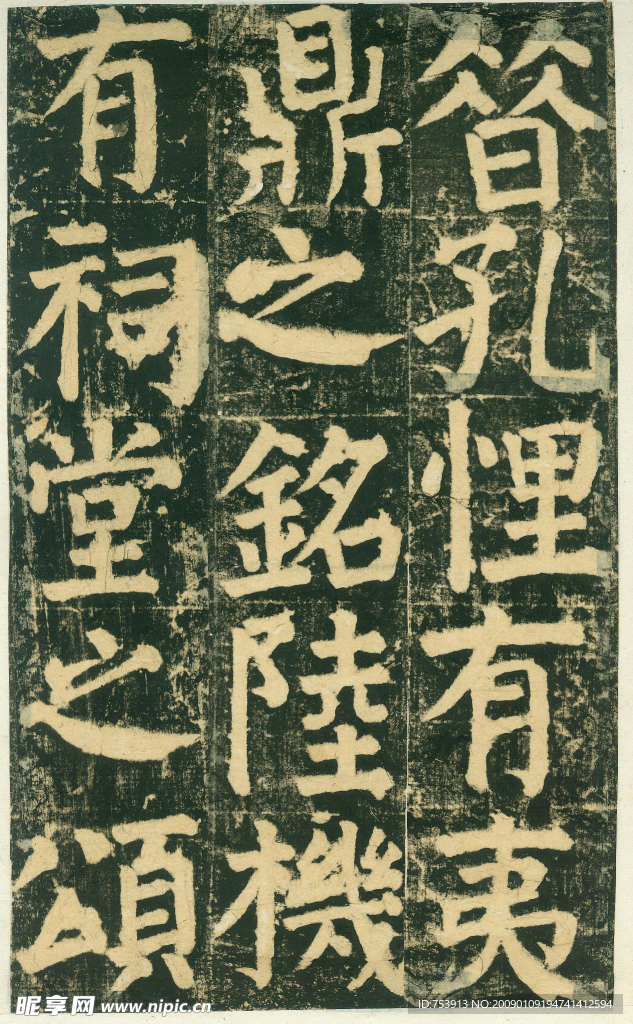 昔孔悝有夷
鼎之銘陸機
有祠堂之頌
昵享网 www.nipic.cn
ID:753913 NO:20090109194741412594